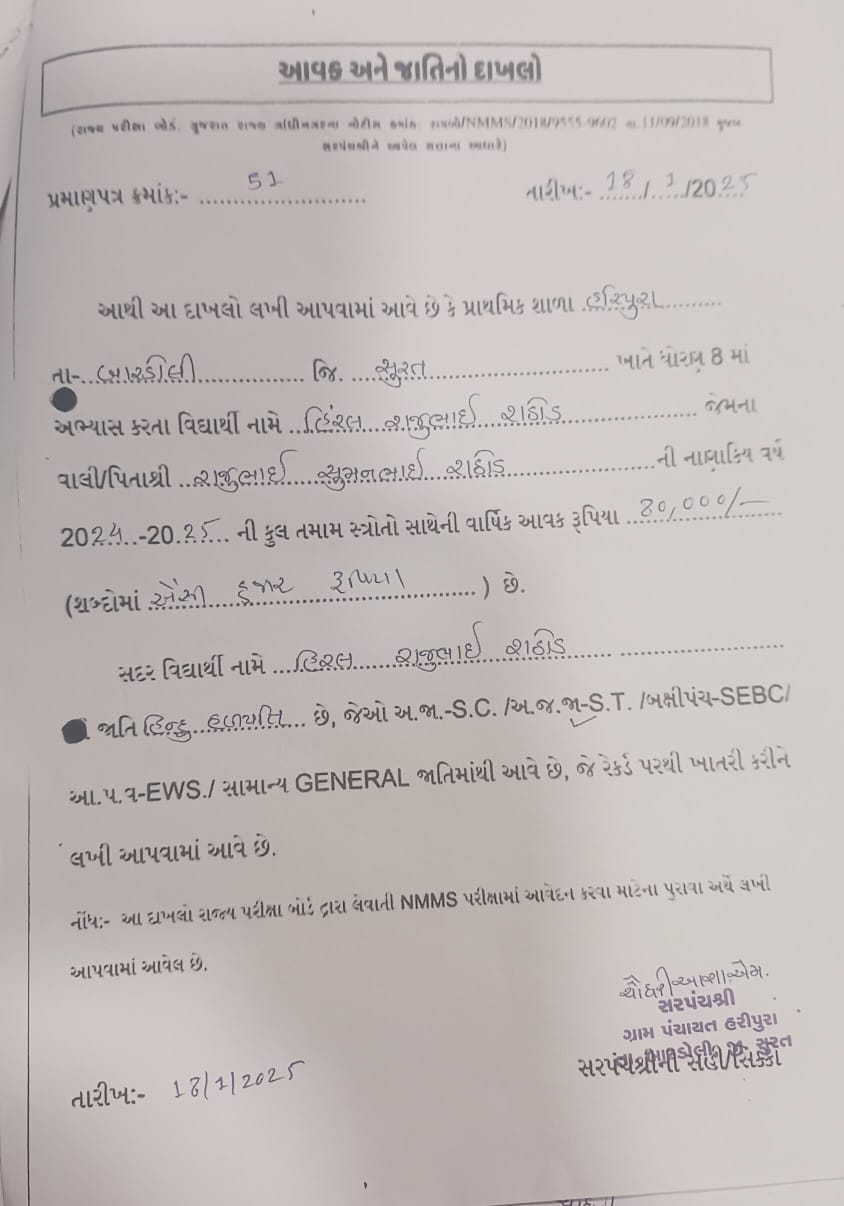 આવક અને જાતિનો દાખલો
(રાજ્ય પરીક્ષા બોર્ડ, ગુજરાત રાજ્ય ગાંધીનગરના નોટીસ ક્રમાંક: રાપબો/NMMS/2018/9555-9602 તા.11/09/2018 મુજબ
સરપંચશ્રીને આપેલ સત્તાના આધારે)
પ્રમાણપત્ર ક્રમાંક:- 51
તારીખ:- 18/1/2025
આથી આ દાખલો લખી આપવામાં આવે છે કે પ્રાથમિક શાળા હરિપુરા
તા- બારડોલી જિ. સુરત ખાતે ધોરણ 8 માં
અભ્યાસ કરતા વિદ્યાર્થી નામે રાજુભાઈ રાઠોડ જેમના
વાલી/પિતાશ્રી રાજુભાઈ સુમનભાઈ રાઠોડ ની નાણાકિય વર્ષ
2024-2025 ની કુલ તમામ સ્ત્રોતો સાથેની વાર્ષિક આવક રૂપિયા 80,000/-
(શબ્દોમાં એંસી હજાર રૂપિયા ) છે.
સદર વિદ્યાર્થી નામે રાજુભાઈ રાઠોડ
જાતિ હિન્દુ હળપતિ છે, જેઓ અ.જા.-S.C. /અ.જ.જા-S.T. /બક્ષીપંચ-SEBC/
આ.પ.વ-EWS./ સામાન્ય GENERAL જાતિમાંથી આવે છે, જે રેકર્ડ પરથી ખાતરી કરીને
લખી આપવામાં આવે છે.
નોંધ:- આ દાખલો રાજ્ય પરીક્ષા બોર્ડ દ્વારા લેવાતી NMMS પરીક્ષામાં આવેદન કરવા માટેના પુરાવા અર્થે લખી
આપવામાં આવેલ છે.
ચૌધરી આશા એમ.
સરપંચશ્રી
ગ્રામ પંચાયત હરીપુરા
તા. બારડોલી, જી. સુરત
સરપંચશ્રીની સહી/સિક્કા
તારીખ:- 18/1/2025